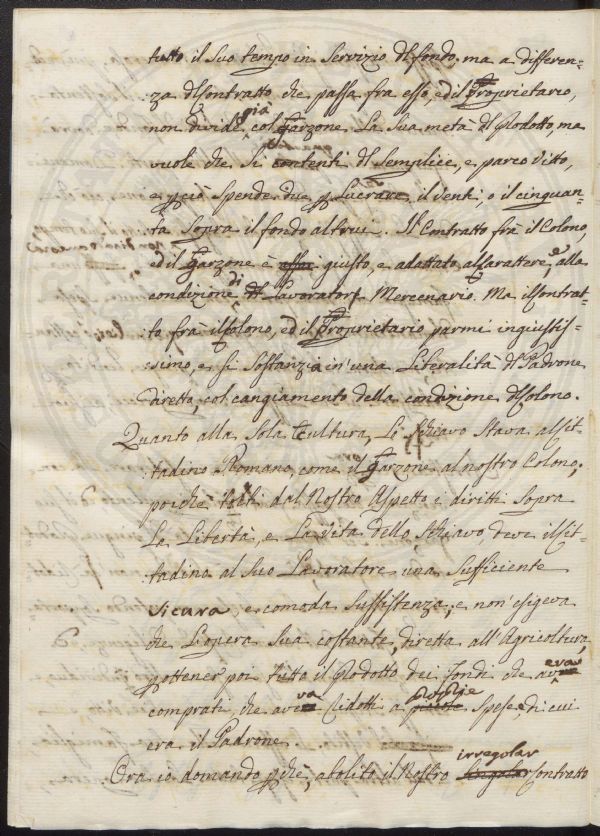 tutto il suo tempo in servizio del fondo. ma a differen=
za del contratto che passa fra esso, ed il Proprietario,
non divide già col Garzone La sua metà del Prodotto, ma
vuole che si contenti del semplice, e parco vitto,
e perciò spende due per Lucrare, il venti, o il cinquan=
ta sopra il fondo altrui. Il Contratto frà il Colono,
ed il Garzone è giusto, e adattato al Carattere, e alla
condizione di Lavoratore Mercenario. Ma il contrat=
to frà il Colono, ed il Proprietario parmi ingiustis=
simo, e si sostanzia in una Liberalità del Padrone
diretta, col cangiamento della condizione del Colono.
Quanto alla sola Cultura, Lo schiavo stava al Cit=
tadino Romano, come il Garzone al nostro Colono;
poichè tolti dal Nostro Aspetto i diritti sopra
La Libertà, e La vita dello schiavo, deve il Cit=
tadino al suo Lavoratore una sufficiente
sicura, e comoda sussistenza, e non esigeva
che L'opera sua costante, diretta all'Agricoltura,
per ottener poi tutto il Prodotto dei fondi che aveva
comprati che aveva ridotti a proprie spese, di cui
era il Padrone.
Ora io domando perchè, abolito il Nostro irregolar Contratto